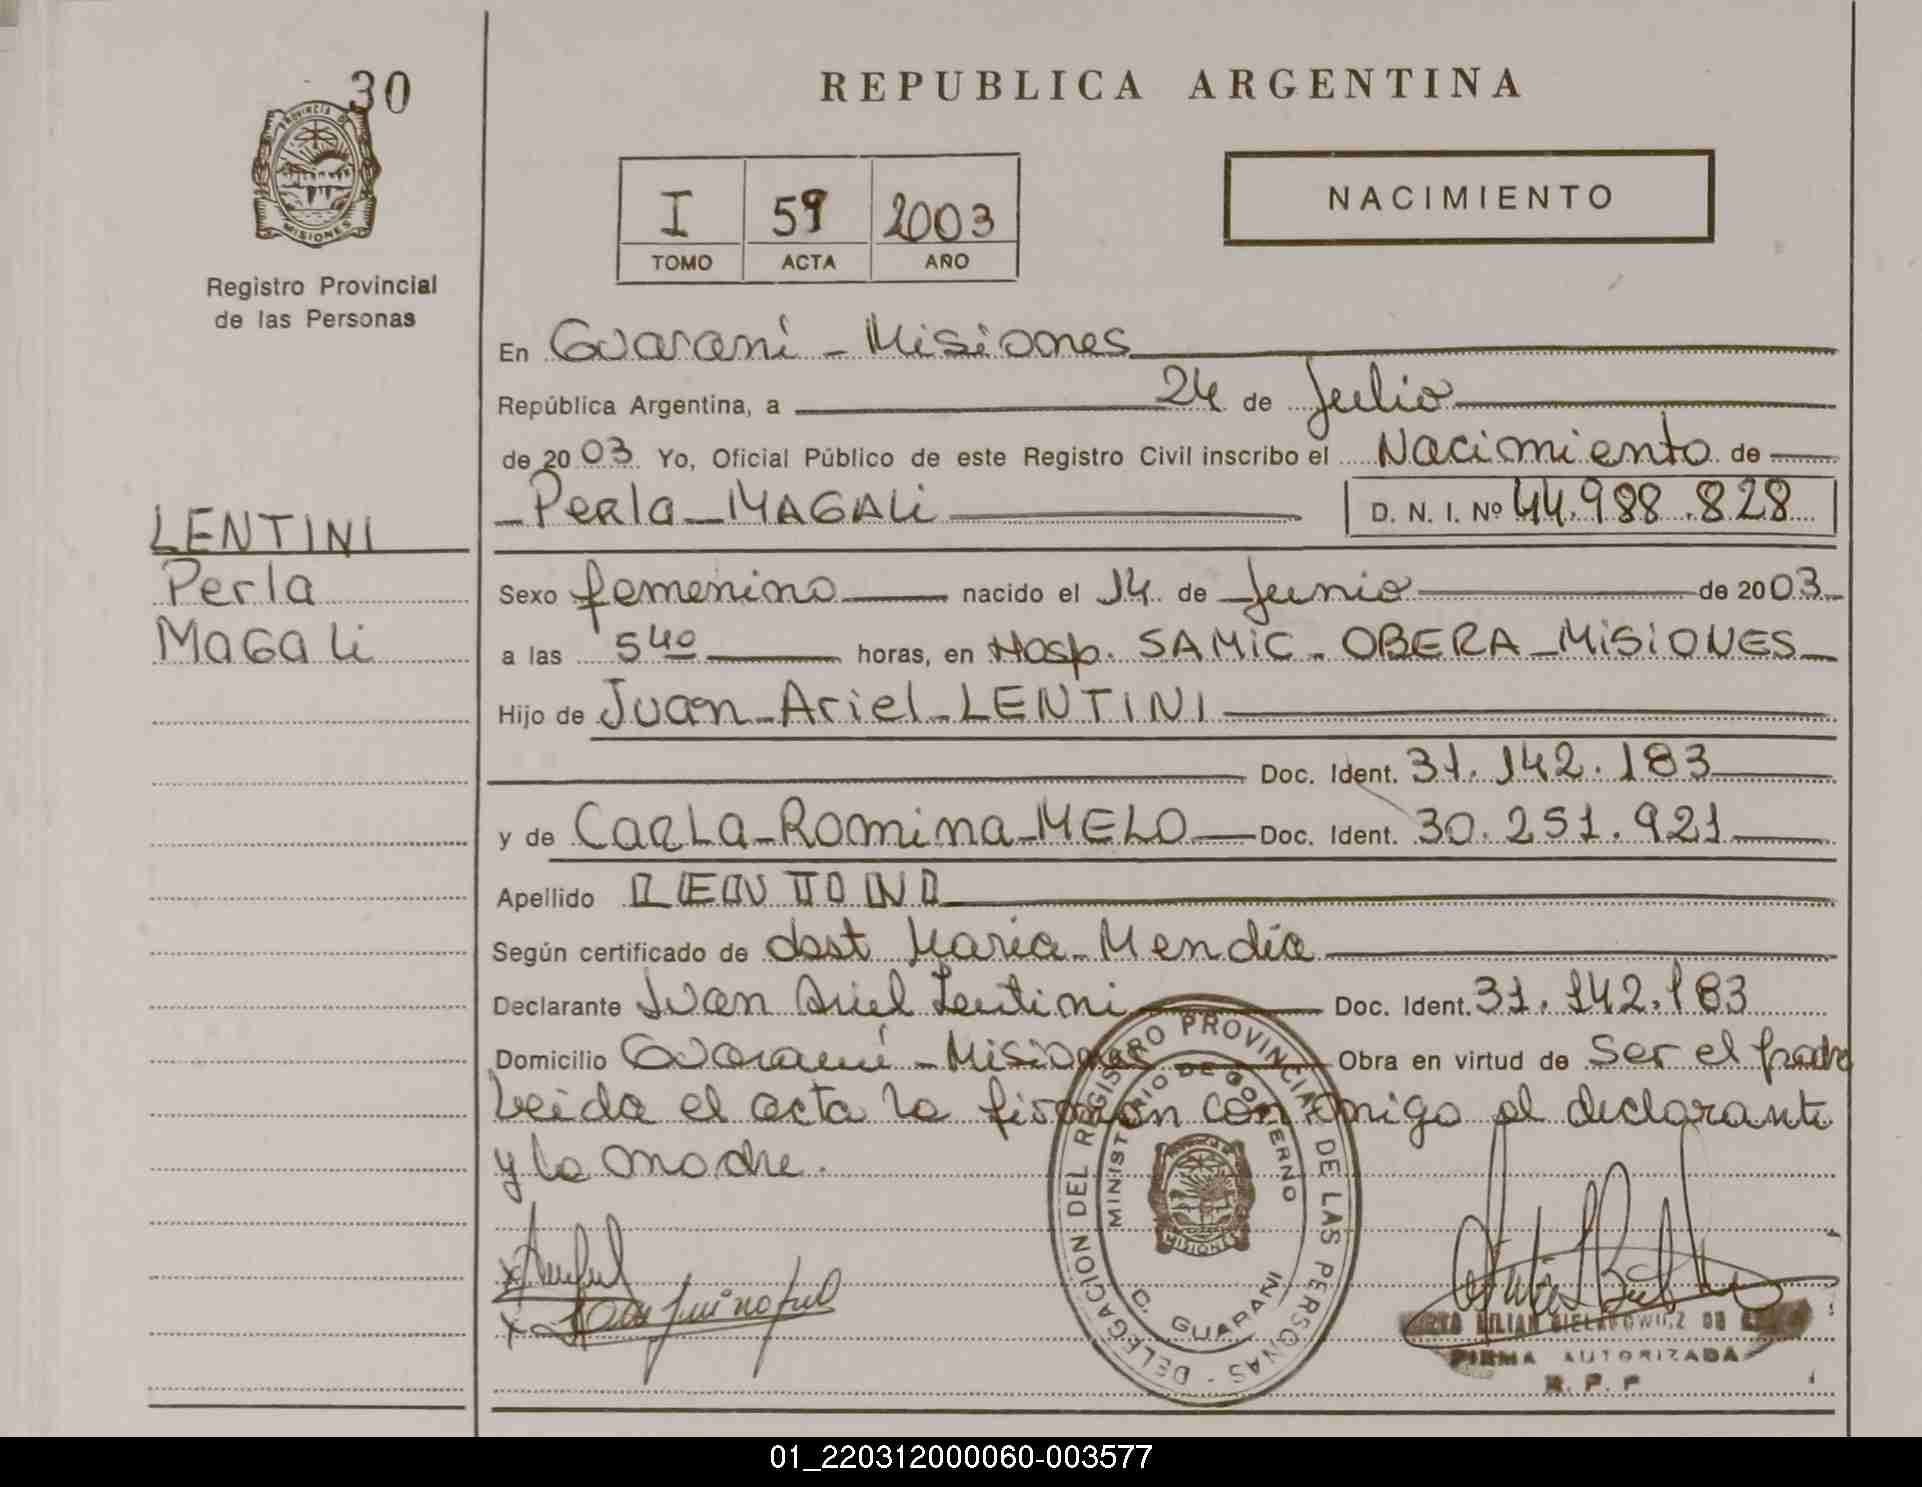 30
PROVINCIA DE
MISIONES
Registro Provincial
de las Personas
LENTINI
Perla
MaGali
REPUBLICA ARGENTINA
I 59 2003
TOMO ACTA AÑO
NACIMIENTO
En Guaraní - Misiones
República Argentina, a 24 de Julio
de 2003 Yo, Oficial Público de este Registro Civil inscribo el Nacimiento de
Perla MAGALi D. N. I. Nº 44.988.828
Sexo femenino nacido el 14 de Junio de 2003
a las 5 40 horas, en Hosp. SAMIC - OBERA - MiSiONES
Hijo de Juan Ariel LENTINI
Doc. Ident. 31.142.183
y de CARLa Romina MELO Doc. Ident. 30.251.921
Apellido LENTINI
Según certificado de obst Maria Mendia
Declarante Juan Ariel Lentini Doc. Ident. 31.142.183
Domicilio Guaraní - Misiones Obra en virtud de Ser el padre
Leida el acta la firman conmigo el declarante
y la madre.
DELEGACION DEL REGISTRO PROVINCIAL DE LAS PERSONAS -
MINISTERIO DE GOBIERNO
MISIONES
C. GUARANI
LILIAN
FIRMA AUTORIZADA
R. P. P
01_220312000060-003577